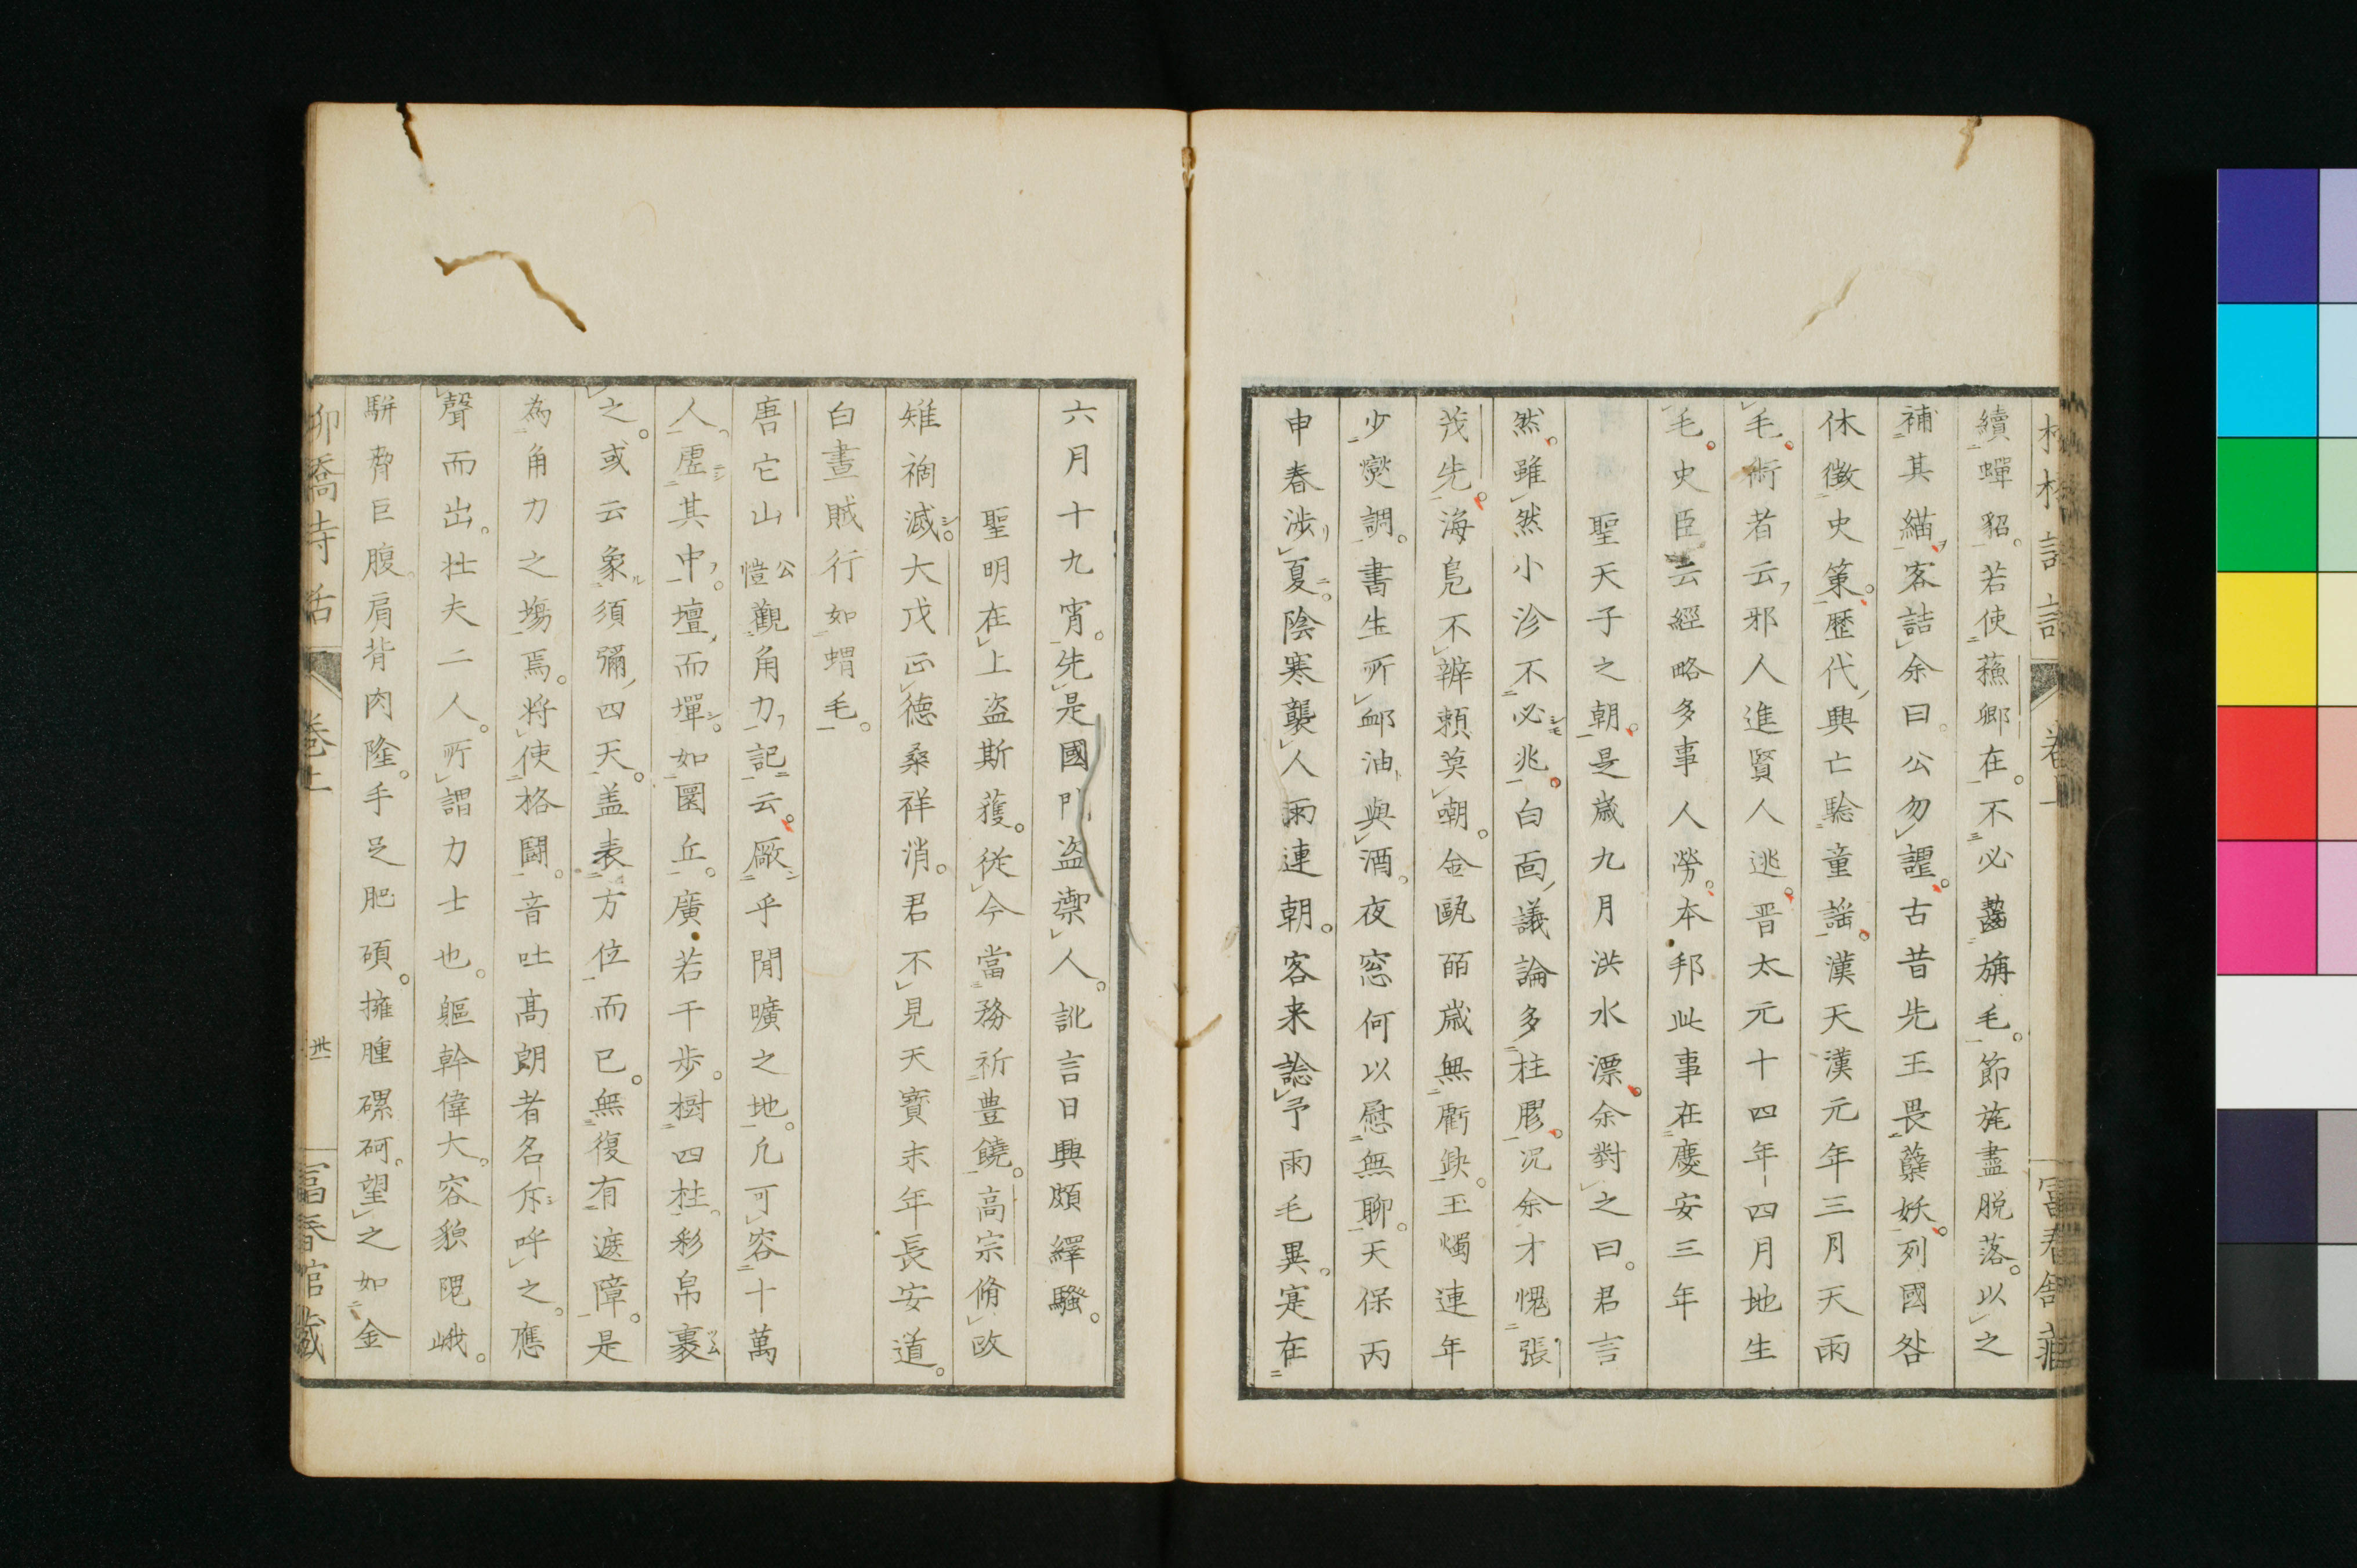 續蟬貂若使蘓卿在不必齧旃毛節旄盡脱落以之
補其緢客詰余曰公勿謹古昔先王畏蘖妖列國咎
休徴史策歴代興亡驗童謡漢天漢元年三月天雨
毛術者云邪人進賢人逃晋太元十四年四月地生
毛史臣云經略多事人勞本邦此事在慶安三年
聖天子之朝是歳九月洪水漂余對之曰君言
然雖然小沴不必兆白面議論多柱膠況余才愧張
茂先海鳬不辨頼莫嘲金甌皕歳無虧缺玉燭連年
少爕調書生所卹油與酒夜窓何以慰無聊天保丙
申春渉夏陰寒襲人雨連朝客来諗予雨毛異寔在
六月十九宵先是國門盗禦人訛言日興頗繹騒
聖明在上盗斯獲従今當務祈豊饒高宗脩政
雉禍滅大戊正徳桑祥消君不見天寳末年長安道
白晝賊行如蝟毛
唐它山 公愷 觀角力記云厰乎閒曠之地凢可容十萬
人虚其中壇而墠如圜丘廣若干歩樹四柱彩帛裹
之或云象須彌四天盖表方位而已無復有遮障是
為角力之塲焉将使格鬪音吐髙朗者名斥呼之應
聲而出壮夫二人所謂力士也軀幹偉大容貌隗峨
駢脅巨腹肩背肉隆手足肥碩擁腫磥砢望之如金
柳橋詩話 巻上 丗 冨春館藏